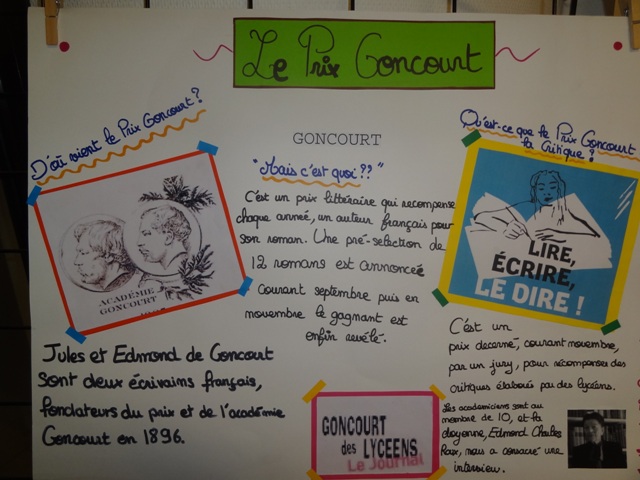 Le Prix Goncourt
D'où vient le Prix Goncourt?
JULES ET EDMOND
ACADÉMIE
GONCOURT
Jules et Edmond de Goncourt
sont deux écrivains français,
fondateurs du prix et de l'académie
Goncourt en 1896.
GONCOURT
"Mais c'est quoi??"
C'est un prix littéraire qui recompense
chaque année, un auteur français pour
son roman. Une pré-selection de
12 romans est annoncée
courant septembre puis en
novembre le gagnant est
enfin revélé.
GONCOURT
des LYCEENS
Le Journal
Qu'est-ce que le Prix Goncourt
la Critique?
LIRE,
ÉCRIRE,
LE DIRE !
C'est un
prix decerné, courant novembre,
par un jury, pour récompenser des
critiques élaborés par des lycéens.
Les academiciens sont au
nombre de 10, et la
doyenne, Edmond Charles
Roux, nous a consacré une
interview.